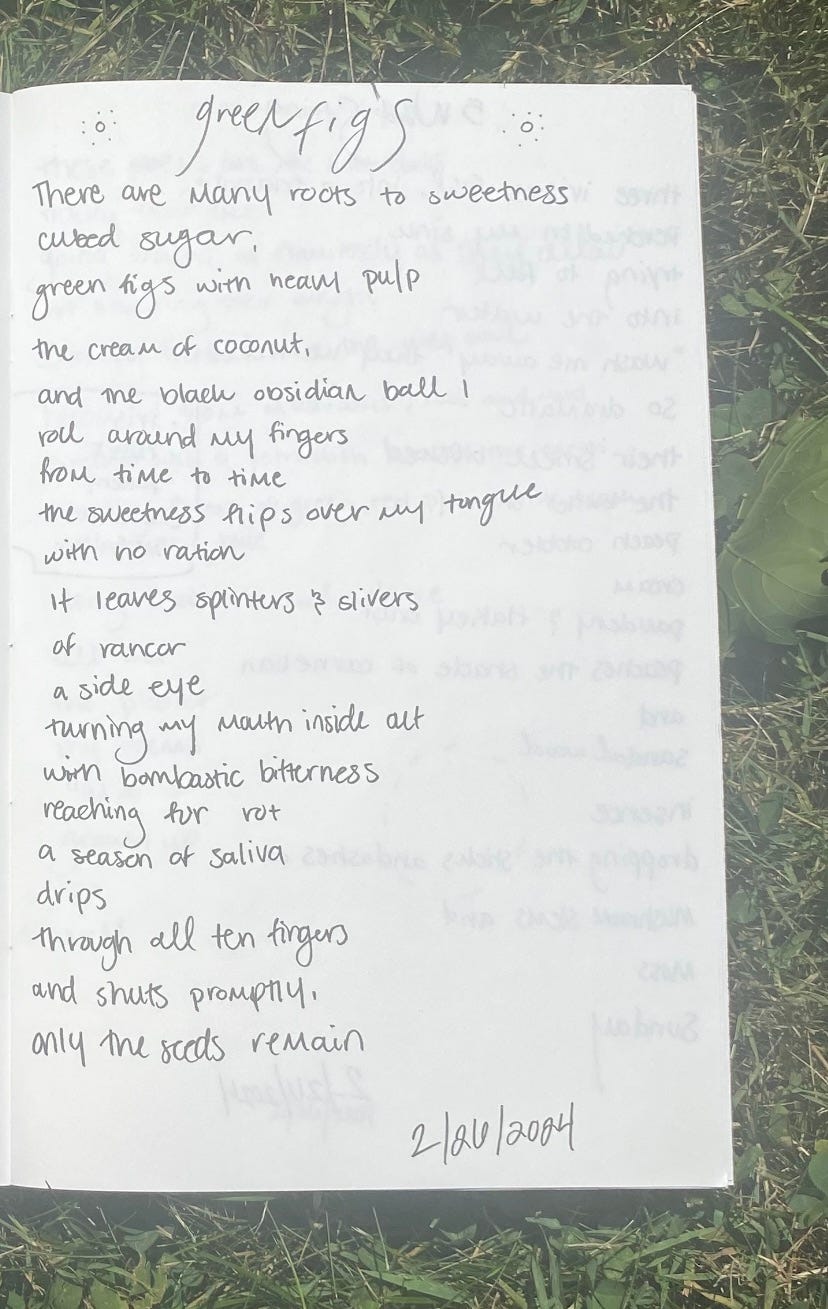 green figs
There are many roots to sweetness
cubed sugar,
green figs with heavy pulp
the cream of coconut,
and the black obsidian ball I
roll around my fingers
from time to time
the sweetness flips over my tongue
with no ration
It leaves splinters & slivers
of rancor
a side eye
turning my mouth inside out
with bombastic bitterness
reaching for rot
a season of saliva
drips
through all ten fingers
and shuts promptly.
only the seeds remain
2/26/2024